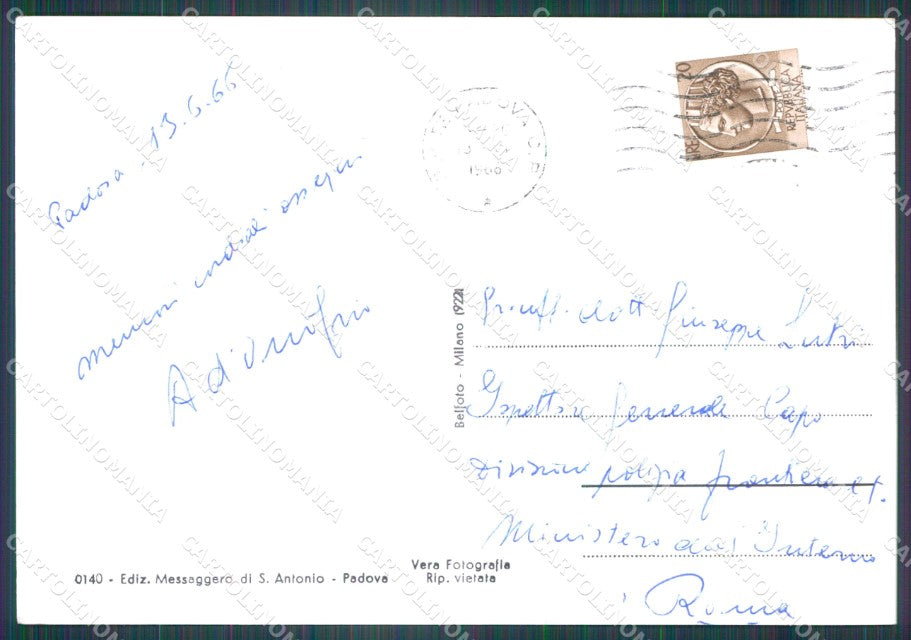 Padova, 13.6.66
memori cordiali ossequi
A d'Onofrio
PADOVA
1966
LIRE 20
REPVBBLICA
ITALIANA
Belfoto - Milano (922)
Gr. uff. dott Giuseppe
Ispettore Generale Capo
Divisione polizia frontiera et.
Ministero dell'Interno
Roma
Vera Fotografia
0140 - Ediz. Messaggero di S. Antonio - Padova Rip. vietata
CARTOLINOMANIA